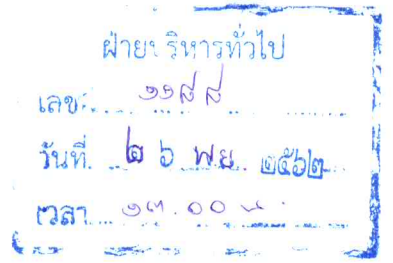 ฝ่ายบริหารทั่วไป
เลขที่ ๑๑๘๘
วันที่ ๒๖ พ.ย. ๒๕๖๒
เวลา ๑๓.๐๐ น.